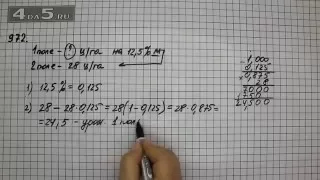 4DA5.RU
972.
1 поле - ? ц/га на 12,5% м
2 поле - 28 ц/га
1) 12,5% = 0,125
2) 28 - 28·0,125 = 28(1-0,125) = 28·0,875 =
= 24,5 - урож. 1 пол
1,000
0,125
0,875
28
7000
1750
24,500